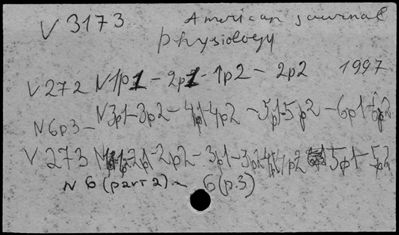 V 3173 American journal
physiology
V 272 N1p1 - 2p1 - 1p2 - 2p2 1997
N6p3 - N3p1-3p2 - 4p1-4p2 - 5p1-5p2 - 6p1-6p2
V 273 2p1-2p2 - 3p1-3p2 5p1-5p2
N 6 (part 2) - 6 (p.3)